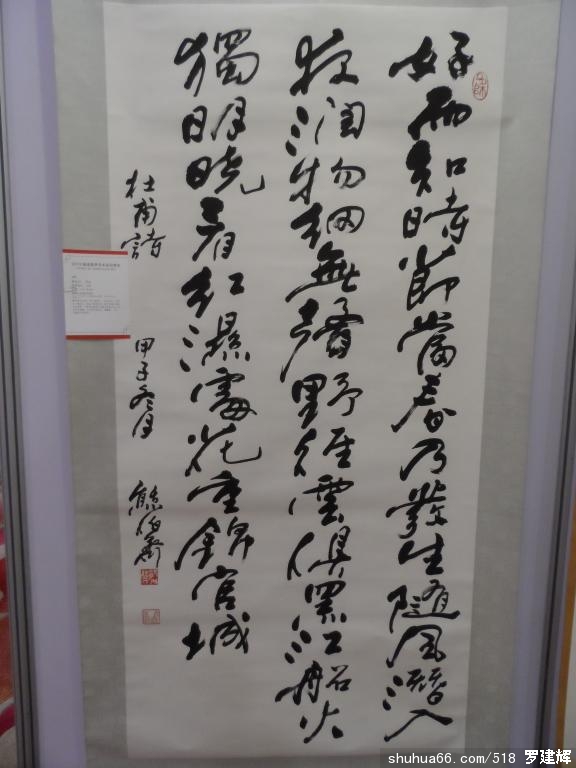 好雨知時節當春乃發生隨風潛入
夜潤物細無聲野徑雲俱黑江船火
獨明曉看紅濕處花重錦官城
杜甫詩
甲子冬月
熊伯齊
shuhua66.com/518 罗建辉